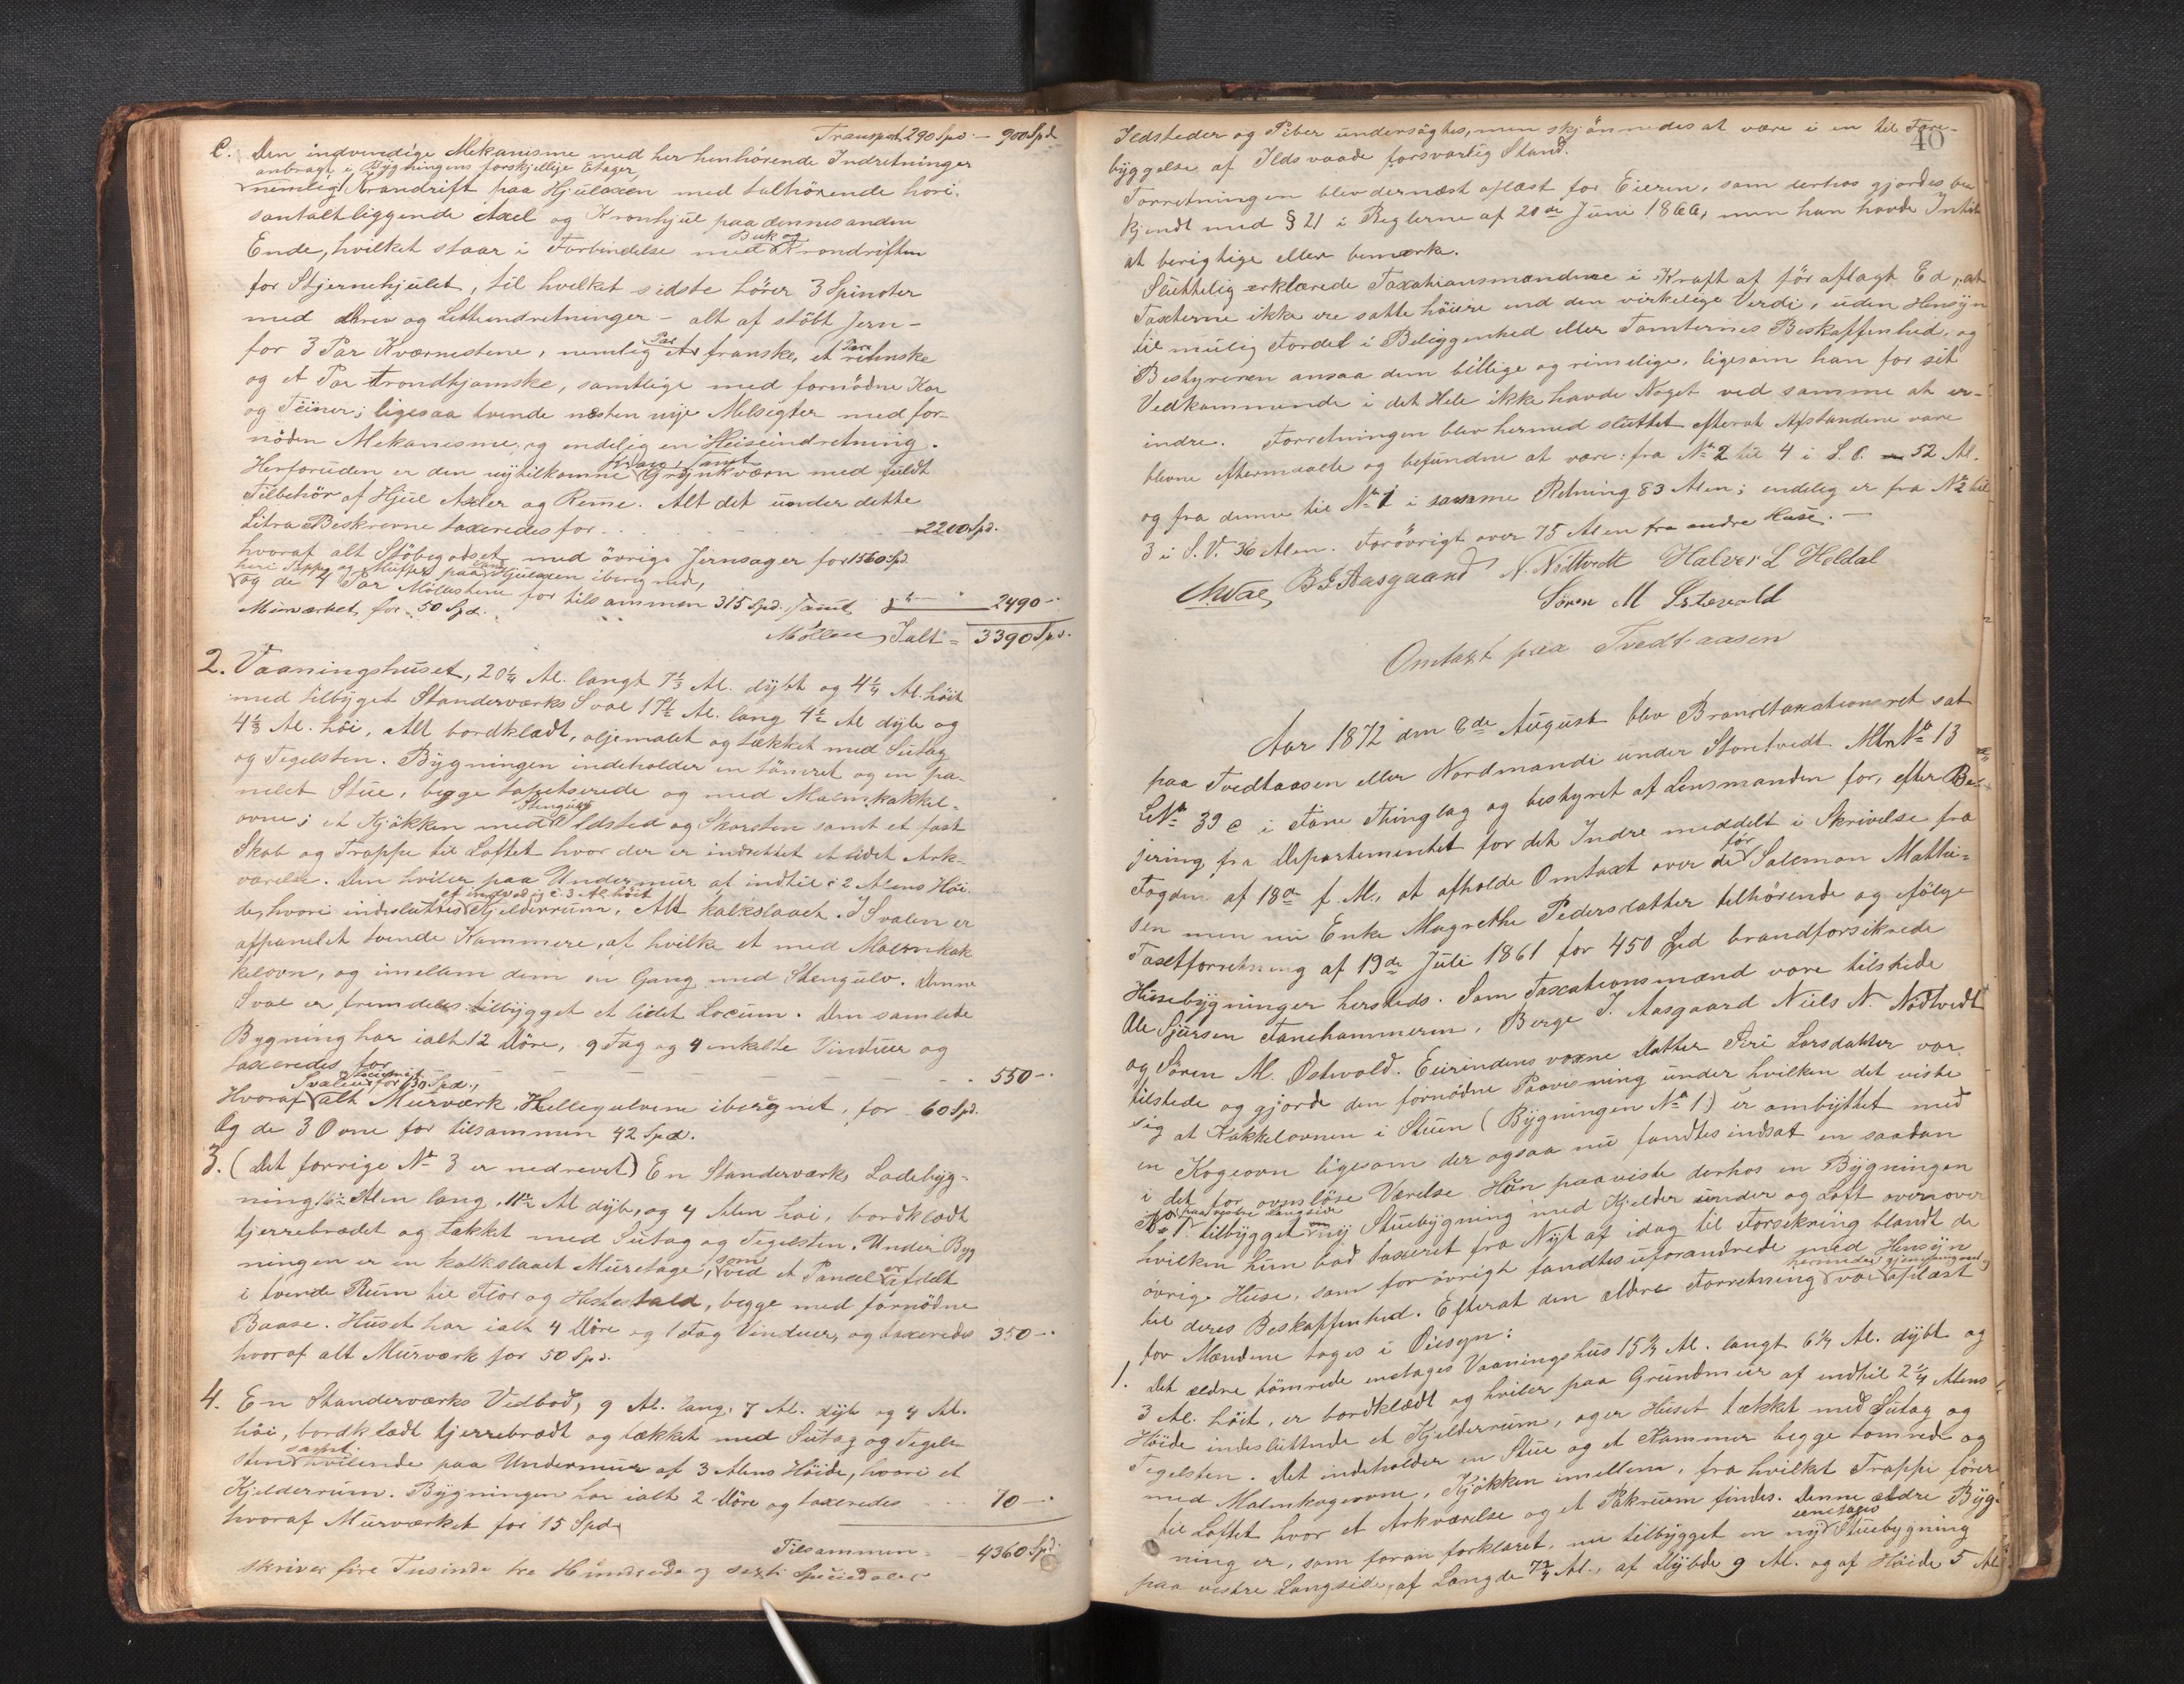 Transport 290 Spd. — 900 Spd.
C. Den indvendige Mekanisme med her henhörende Indretninger
anbragt i Bygningens forskjellige Etager,
nemlig Krandrift paa Hjulaxen med tilhörende hori-
santalt liggende Axel og Kronhjul paa dennes anden
Buk og
Ende, hvilket staar i Forbindelse med Krondriften
for Stjernehjulet, til hvilket sidste hører 3 Spinoter
med Drev og Letteindretninger – alt af stöbt Jern –
Par Par
for 3 Par Kværnstene, nemlig et franske, et rhinske
og et Par trondhjemske, samtlige med fornödne Kar
og Teiner; ligesaa tvende næsten nye Melsigter med for-
nöden Mekanisme, og endelig en Heiseindretning.
samt
Herforuden er den nytilkomne Grynkværn med fuldt
Tilbehör af Hjul Axler og Reme. Alt det under dette
Litra Beskrevne taxeredes for . . . . 2200 Spd.
hvoraf alt Stöbegodset med övrige Jernsager for 1560 Spd.
heri Tappe og Muffer paa Hjulaxen iberegnede,
og de 4 Par Möllestene for tilsammen 315 Spd. samt
Murværket for 50 Spd. 2490 –
Möllen Ialt = 3390 Spd.
2. Vaaningshuset, 20¼ Al. langt 7⅓ Al. dybt og 4¼ Al. höit
med tilbygget Standerværks Sval 17½ Al. lang 4½ Al dyb og
4⅓ Al. höi, Alt bordklædt, oljemalet og tækket med Sutag
og Tegelsten. Bygningen indeholder en tömret og en pa-
nelet Stue, begge tapetserede og med Malmkakkel-
Stengulv
ovne; et Kjökken med Ildsted og Skorsten samt et fast
Skab og Trappe til Loftet hvor der er indrettet et lidet Ark-
værelse. Den hviler paa Undermur af indtil 2 Alens Höi-
af indvendig c. 3 Al. höit
de, hvori indesluttes Kjelderrum, Alt kalkslaaet. I Svalen er
afpanelet tvende Kammere, af hvilke et med Malmkak-
kelovn, og imellem dem en Gang med Stengulv. Denne
Sval er fremdeles tilbygget et lidet Locum. Den samlede
Bygning har ialt 12 Döre, 9 Fag og 4 enkelte Vinduer og
taxeredes for — — — — 550 –
Svalen Locumet for 130 Spd.,
Hvoraf alt Murværk, Hellegulvene iberegnet, for 60 Spd.
Og de 3 Ovne for tilsammen 42 Spd.
3. (Det forrige No 3 er nedrevet) En Standerværks Ladebyg-
ning, 16½ Alen lang, 11½ Al dyb, og 4 Alen höi, bordklædt
tjerrebrædet og tækket med Sutag og Tegelsten. Under Byg
som er
ningen er en kalkslaaet Muretage, ved et Paneel afdelt
i tvende Rum til Flor og Hestestald, begge med fornödne
Baase. Huset har ialt 4 Döre og 1 Fag Vinduer, og taxeredes 350 –
hvoraf alt Murværk for 50 Spd.
4. En Standerværks Vedbod, 9 Al. lang, 7 Al. dyb og 4 Al.
höi, bordklædt tjerrebrædt og tækket med Sutag og Tegel-
samt
sten hvilende paa Undermur af 3 Alens Höide, hvori et
Kjelderrum. Bygningen har ialt 2 Döre og taxeredes . . . 70 –
hvoraf Murværket for 15 Spd.
Tilsammen – 4360 Spd.
skriver fire Tusinde tre Hundrede og sexti Speciedaler
40
Ildsteder og Piber undersögtes, men skjönnedes at være i en til Fore-
byggelse af Ildsvaade forsvarlig Stand.
Forretningen blev dernæst oplæst for Eieren, som derhos gjordes be-
kjendt med § 21 i Reglerne af 20de Juni 1866, men han havde Intet
at berigtige eller bemærke.
Sluttelig erklærede Taxationsmændene i Kraft af för aflagt Ed, at
Taxterne ikke ere satte höiere end den virkelige Verdi, uden Hensyn
til mulig Fordel i Beliggenhed eller Tomternes Beskaffenhed, og
Bestyreren ansaa dem billige og rimelige, ligesom han for sit
Vedkommende i det Hele ikke havde Noget ved samme at er-
indre. Forretningen blev hermed sluttet efterat Afstandene vare
blevne eftermaalte og befundne at være: fra No 2 til 4 i S.O. 52 Al.
og fra denne til No 1 i samme Retning 83 Alen; endelig er fra No 2 til
3 i S.V. 36 Alen. Forövrigt over 75 Alen fra andre Huse. —
B. J. Aasgaard N. Nödtvedt Halver L Heldal
Sören M Østevold
Omtaxt paa Tvedtaasen
Aar 1872 den 8de August blev Brandtaxationsret sat
paa Tvedtaasen eller Nordmandi under Storetvedt Mtr No 13
L No 39 c i Fane Thinglag og bestyret af Lensmanden for, efter Be-
jering fra Departementet for det Indre meddelt i Skrivelse fra
Fogden af 18de f. M., at afholde Omtaxt over de för Salemon Mathi-
sen men nu Enke Magrethe Pedersdatter tilhörende og ifölge
Taxtforretning af 19de Juli 1861 for 450 Spd brandforsikrede
Husebygninger hersteds. Som Taxationsmænd vare tilstede
Ole Sjursen Fanehammeren, Berge J. Aasgaard Niels N. Nödtvedt
og Sören M. Østevold. Eierindens voxne Datter Siri Larsdatter var
tilstede og gjorde den fornödne Paavisning under hvilken det viste
sig at Kakkelovnen i Stuen (Bygningen No 1) er ombyttet med
en Kogeovn ligesom der ogsaa nu fandtes indsat en saadan
i det för ovnslöse Værelse. Hun paaviste derhos en Bygningen
paa vestre Langside
No 1 tilbygget ny Stuebygning med Kjelder under og Loft ovenover
hvilken hun bad taxeret fra Nyt af idag til Forsikring blandt de
övrige Huse, som forövrigt fandtes uforandrede med Hensyn
til deres Beskaffenhed. Efterat den ældre Forretning var oplæst
for Mændene toges i Öiesyn:
1. Det ældre tömrede enetages Vaaningshus 15¾ Al. langt 6¼ Al. dybt og
3 Al. höit, er bordklædt og hviler paa Grundmur af indtil 2¼ Alens
Höide indesluttende et Kjelderrum, og er Huset tækket med Sutag og
Tegelsten. Det indeholder en Stue og et Kammer begge tömrede og
med Malmkogeovne, Kjökken imellem, fra hvilket Trappe förer
til Loftet hvor et Arkværelse og et Pakrum findes. Denne ældre Byg-
eenetages
ning er, som foran forklaret, nu tilbygget en ny Stuebygning
paa vestre Langside, af Længde 7¾ Al., af Dybde 9 Al. og af Höide 5 Al.